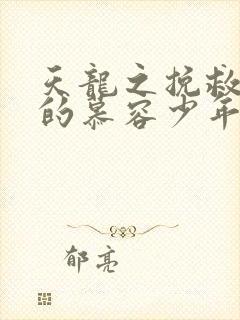 天龍之挽救
的慕容少年
郁亮